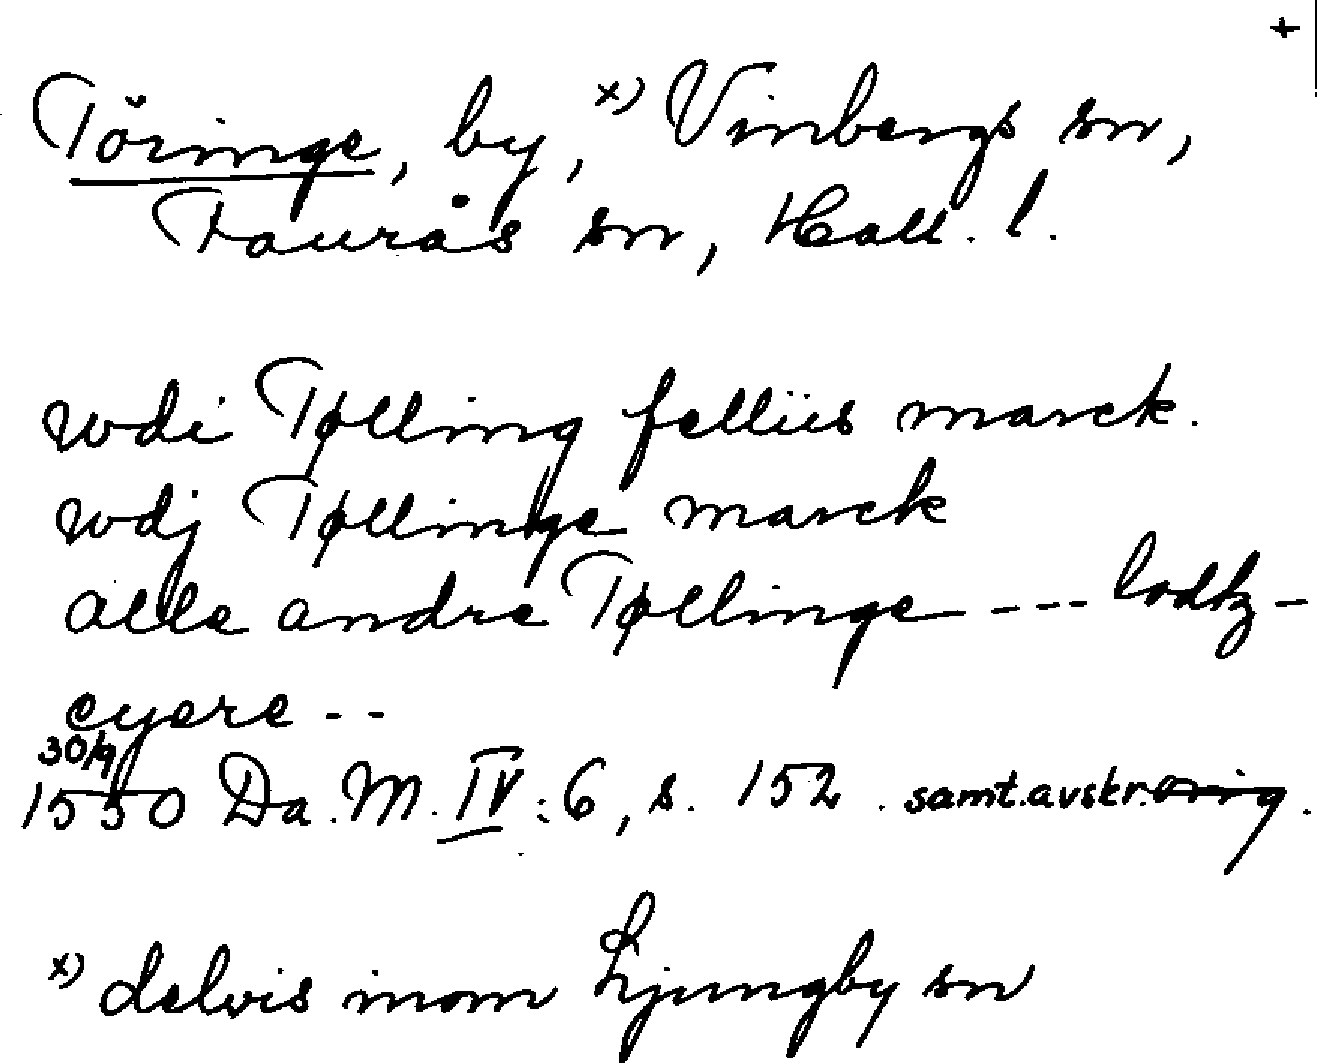 +
Töringe, by, x) Vinbergs sn,
Faurås sn, Hall. l.
wdi Tølling felliis marck.
wdj Tøllinge marck
alle andre Tøllinge --- lodtz-
eyere --
30/9
1550 Da. M. IV:6, s. 152. samt. avskr.
x) delvis inom Ljungby sn